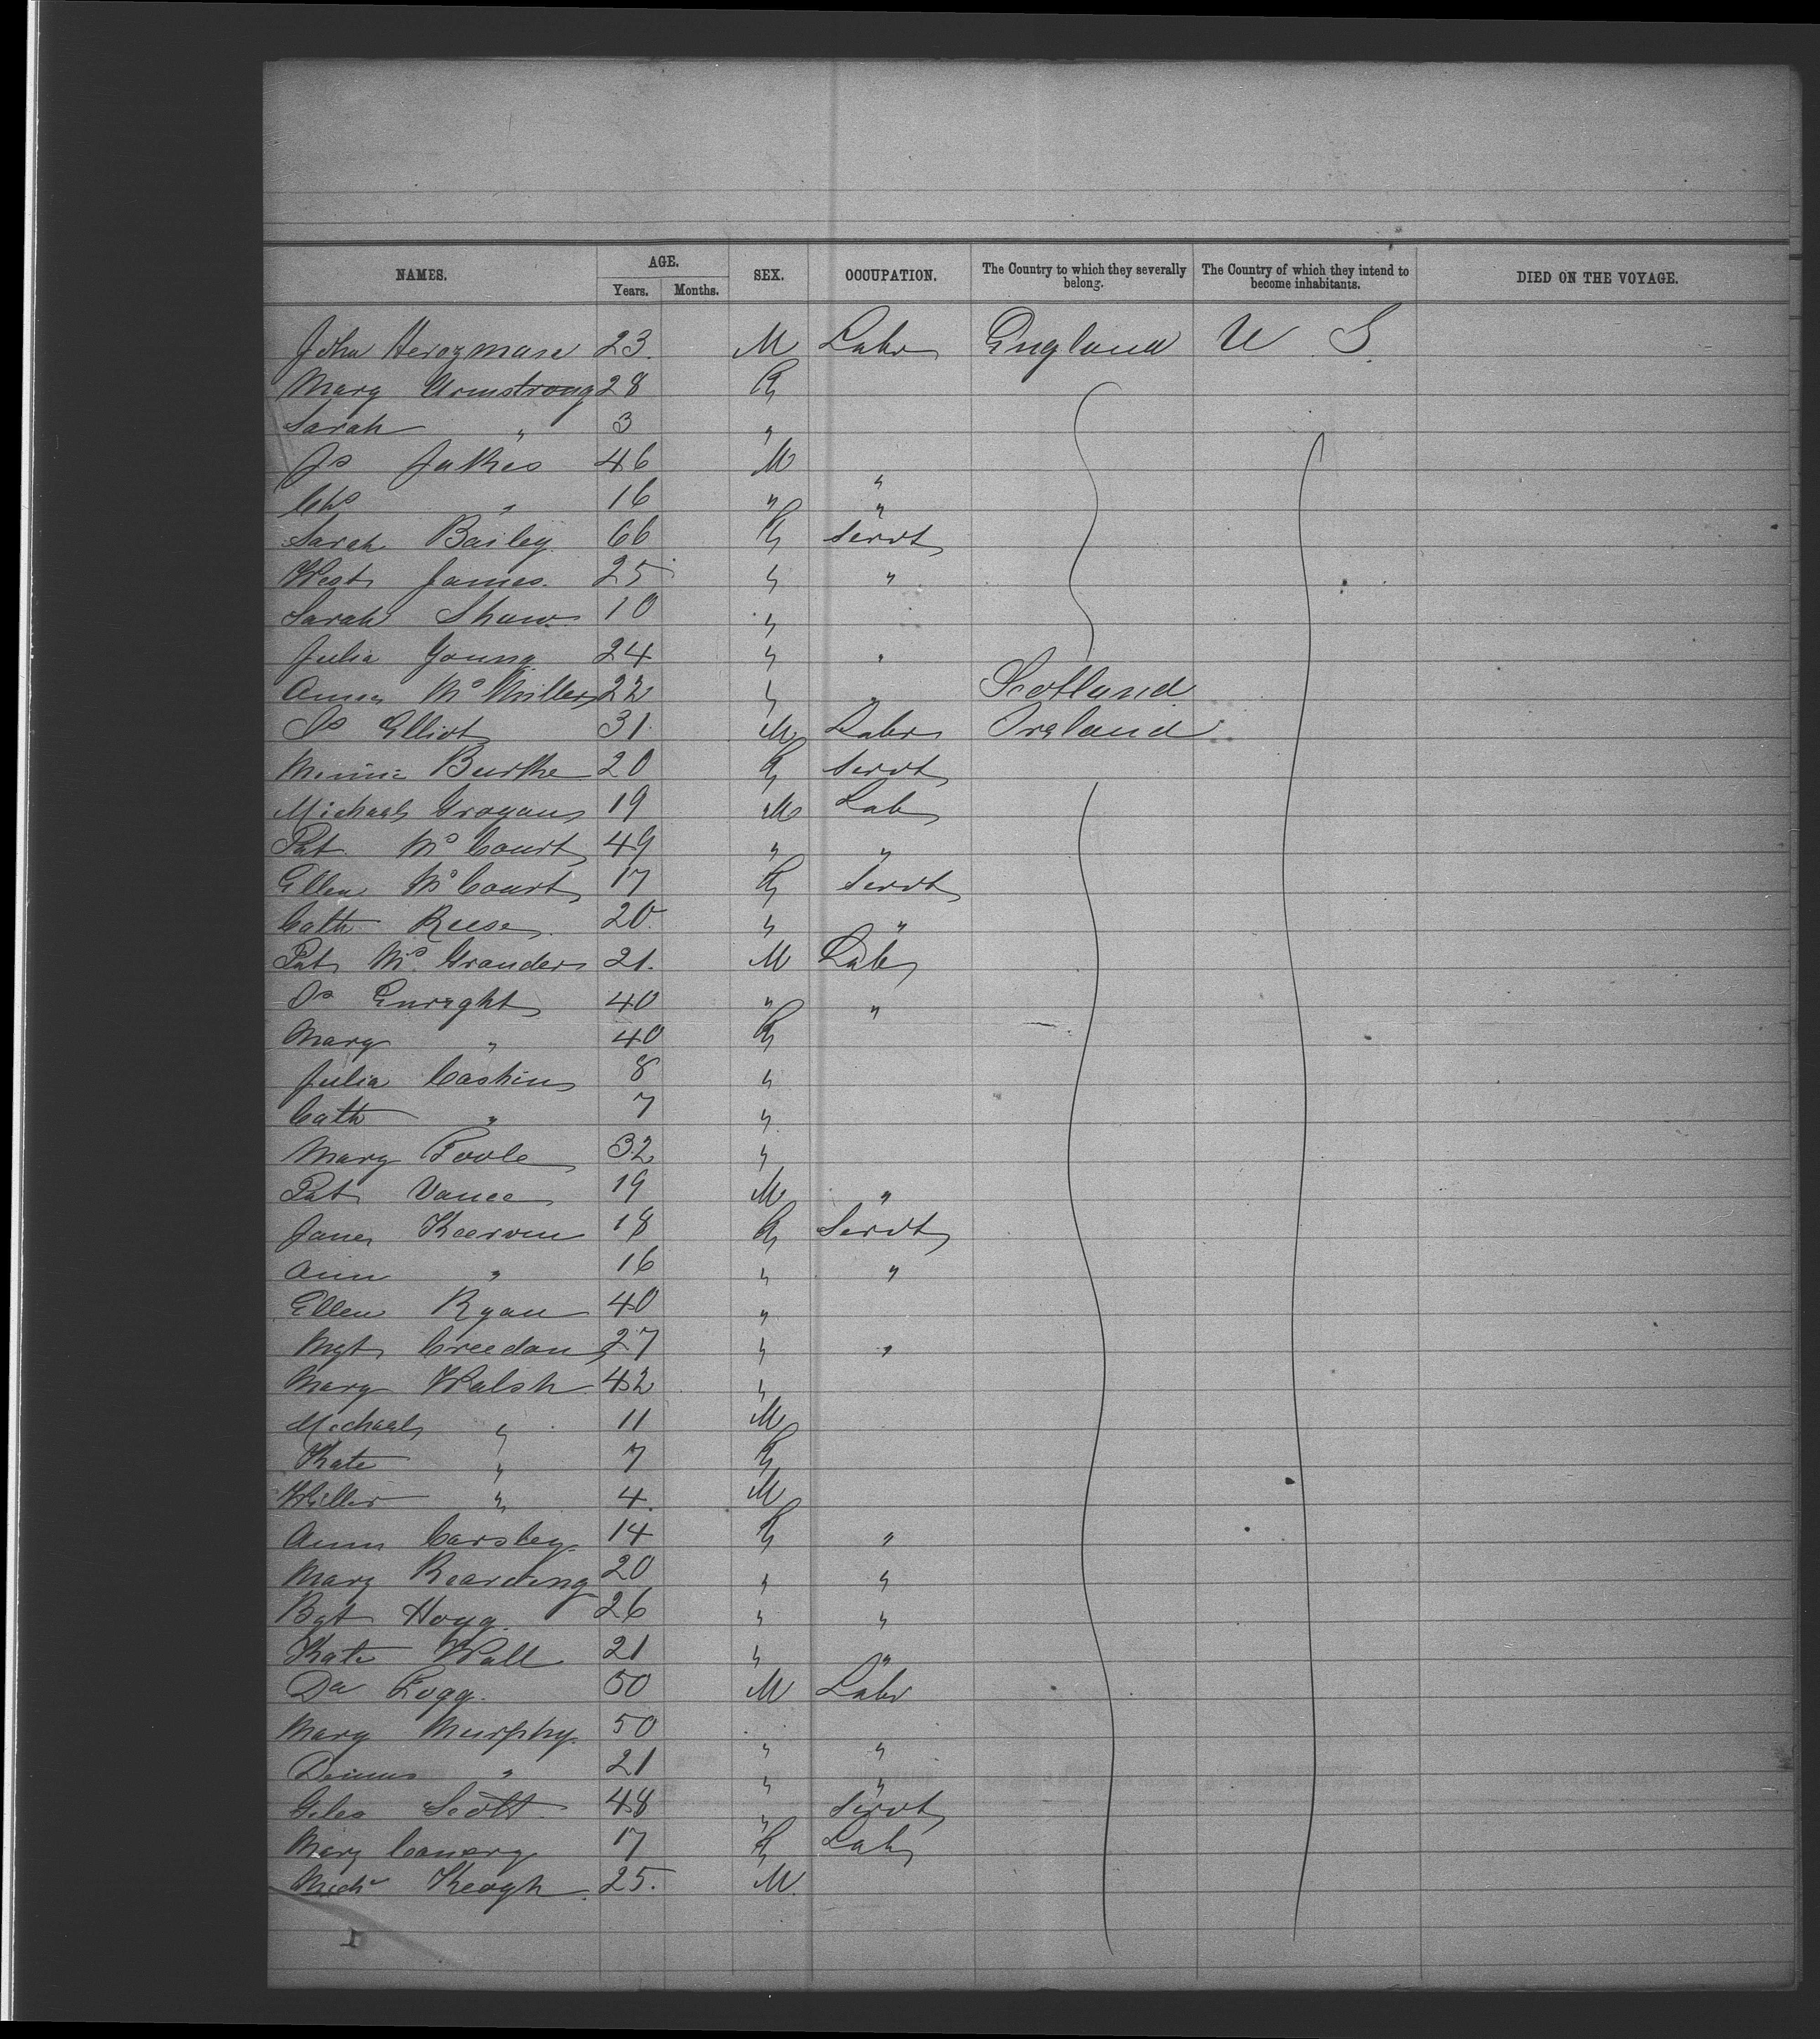 NAMES. AGE. SEX. OCCUPATION. The Country to which they severally belong. The Country of which they intend to become inhabitants. DIED ON THE VOYAGE.
Years. Months.
John 23. M Labr England U S.
Mary Armstrong 28 F
Sarah " 3 "
Js Jakes 46 M "
Chs " 16 " "
Sarah Bailey 66 F Servt
West James. 25 " "
Sarah Shaw 10 "
Julia Young 24 " "
Annie McMiller 22 " " Scotland
Js Elliot 31. M Labr Ireland
Minnie Burke 20 F Servt
Michael Grogan 19 M Lab
Pat McCourt 49 " "
Ellen McCourt 17 F Servt
Cath Reese 20. " "
Pat 21. M Lab
Js Enright 40 " "
Mary " 40 F
Julia Caskin 8 "
Cath " 7 "
Mary Toole 32 "
Pat Vance 19 M "
Jane 18 F Servt
Ann " 16 " "
Ellen Ryan 40 "
Mgt Creedan 27 " "
Mary Walsh 42 "
Michael " 11 M
Kate " 7 F
Willie " 4. M
Ann Carsley 14 F "
Mary Rearding 20 " "
Bgt Hogg 26 " "
Kate Wall 21 " "
Da Fogg. 50 M Labr
Mary Murphy. 50 " "
Dennis " 21 " "
Giles Scott 48 " Servt
Mary 17 F Lab
Michl Keogh 25. M.